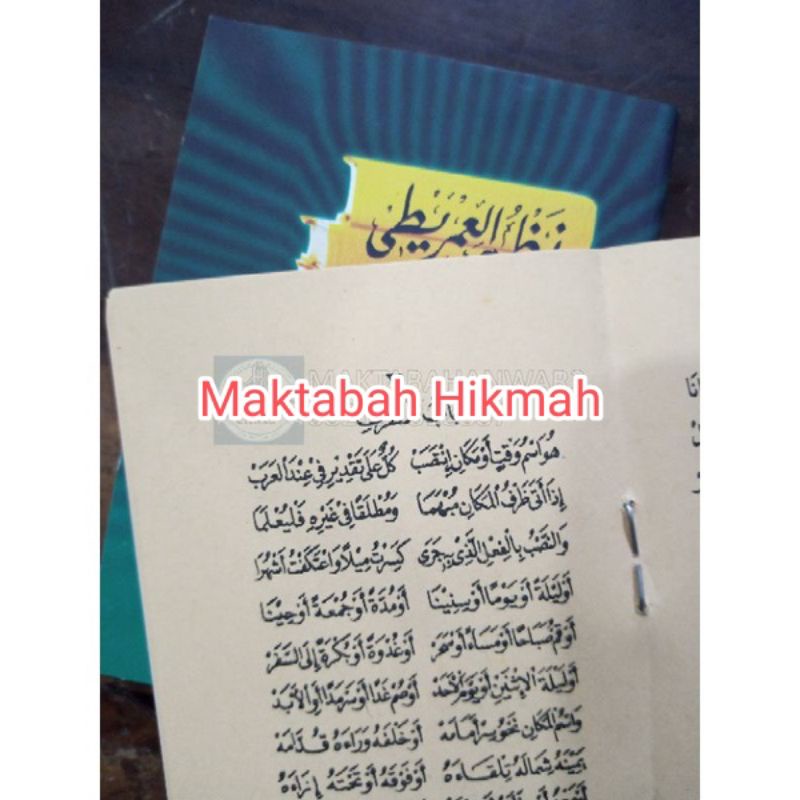 نَظْمُ العِمْرِيطِي
MAKTABAH ANWAR
Maktabah Hikmah
بَابُ الظَّرْفِ
هُوَاسْمُ وَقْتٍ أَوْ مَكَانٍ اِنْتَصَبْ كُلٌّ عَلَى تَقْدِيرِ فِي عِنْدَ الْعَرَبْ
إِذَا أَتَى ظَرْفُ الْمَكَانِ مُبْهَمَا وَمُطْلَقًا فِي غَيْرِهِ فَلْيُعْلَمَا
وَالنَّصْبُ بِالْفِعْلِ الَّذِي بِهِ جَرَى كَسِرْتُ مِيلًا وَاعْتَكَفْتُ أَشْهُرَا
أَوْ لَيْلَةً أَوْ يَوْمًا أَوْ سِنِينَا أَوْ مُدَّةً أَوْ جُمْعَةً أَوْ حِينَا
أَوْ قُمْ صَبَاحًا أَوْ مَسَاءً أَوْ سَحَرْ أَوْ غُدْوَةً أَوْ بُكْرَةً إِلَى السَّفَرْ
أَوْ لَيْلَةَ الْإِثْنَيْنِ أَوْ يَوْمَ الْأَحَدْ أَوْ صُمْ غَدًا أَوْ سَرْمَدًا أَوِ الْأَبَدْ
وَاسْمُ الْمَكَانِ نَحْوُ سِرْ أَمَامَهْ أَوْ خَلْفَهُ وَرَاءَهُ قُدَّامَهْ
يَمِينَهُ شِمَالَهُ تِلْقَاءَهُ أَوْ فَوْقَهُ أَوْ تَحْتَهُ إِزَاءَهُ